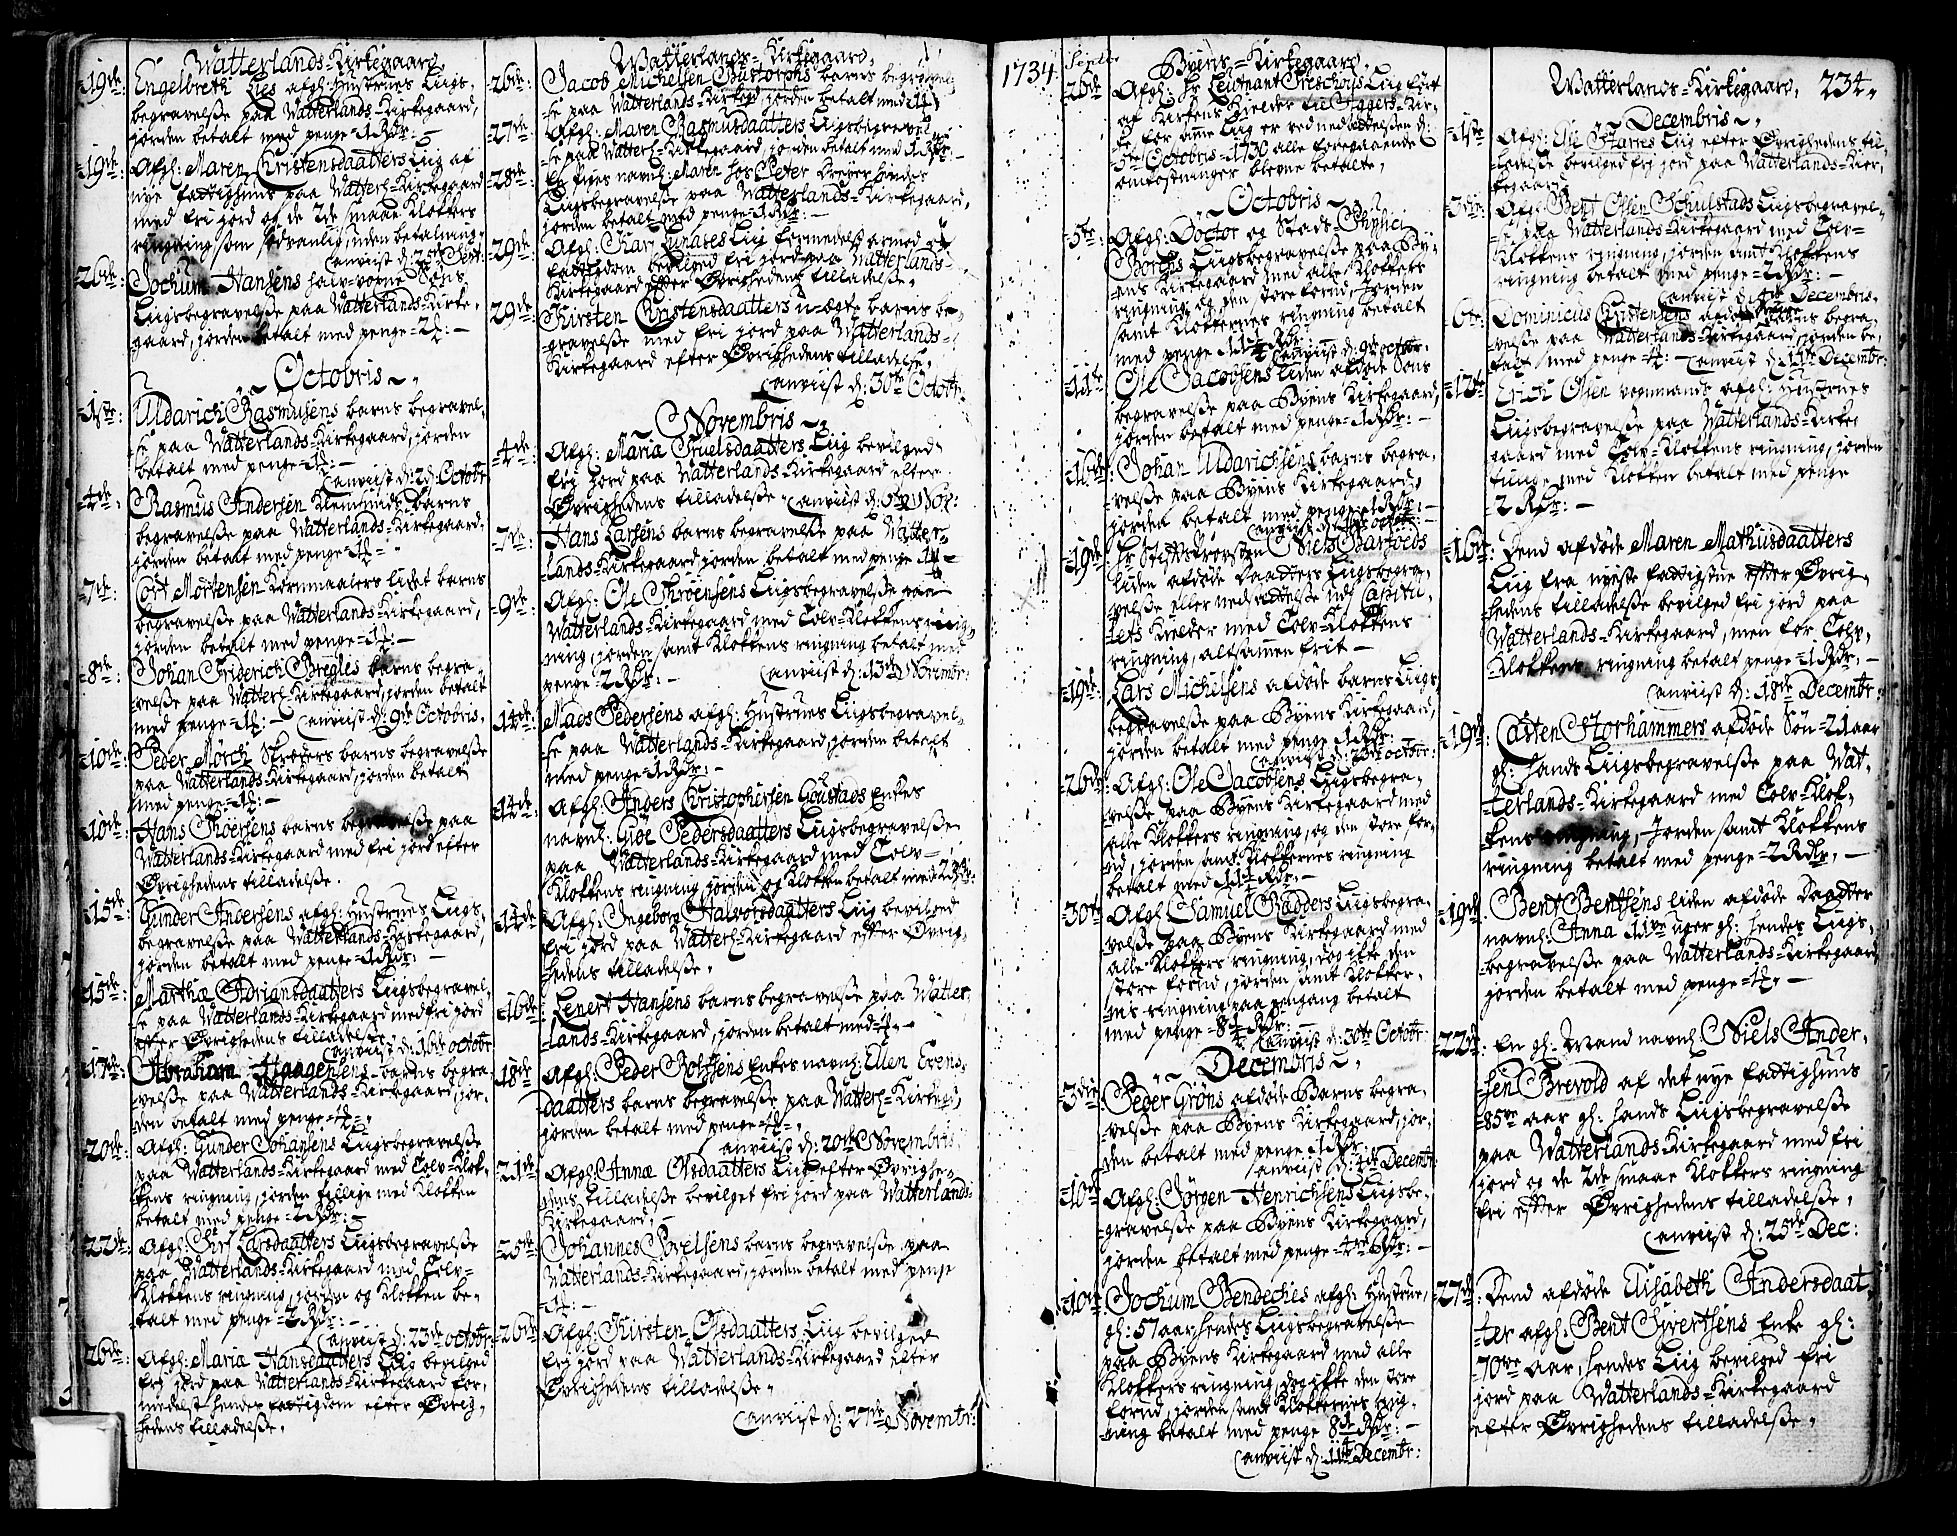 Watterlands-Kirkegaard,
19de: Engelbreth Lies afgl: Hustrues Liigs-
begravelse paa Watterlands-Kirkegaard,
jorden betalt med penge -1 Rdr: -
19de: Afgl: Maren Christensdaatters Liig af
nye fattighuus paa Watterl-Kirkegaard
med fri jord og de 2de smaae Klokkers
ringning som sædvanlig, uden betalning.
Anviist d: 25de Sept:
26de: Jochum Hansens halv-voxne Søns
Liigsbegravelse paa Watterlands-Kirke-
gaard, jorden betalt med penge
Octobris
1ste: Uldarich Rasmusens barns begravel-
se paa Watterlands-Kirkegaard, jorden
betalt med penge
Anviist d: 2de Octobr
4de: Rasmus Andersen Kleinsmids barns
begravelse paa Watterlands-Kirkegaard,
jorden betalt med penge
7de: Cort Mortensen Kornmaalers lidet barns
begravelse paa Watterlands-Kirkegaard,
jorden betalt med penge
8de: Johan Friderich Bregles barns begra-
velse paa Watterl-Kirkegaard, jorden betalt
med penge Anviist d: 9de Octobris.
10de: Peder Mørch Skræders barns begravelse
paa Watterlands-Kirkegaard, jorden betalt
med penge
10de: Hans Thoersens barns begravelse paa
Watterlands-Kirkegaard med fri jord efter
Øvrighedens tilladelse.
15de: Gunder Andersens afgl: Hustrues Liigs-
begravelse paa Watterlands-Kirkegaard,
jorden betalt med penge -1 Rdr: -
15de: Marthæ Adriansdaatters Liigsbegravel-
se paa Watterlands-Kirkegaard med fri jord
efter Øvrighedens tilladelse
Anviist d: 16de Octobr
17de: Abraham Haagensens barns begra-
velse paa Watterlands-Kirkegaard, jor-
den betalt med penge
20de: Afgl: Gunder Johansens Liigsbegravelse
paa Watterlands-Kirkegaard med Tolv-Klok-
kens ringning, jorden tillige med Klokken
betalt med penge -2 Rdr: -
22de: Afgl: Larsdaatters Liigsbegravelse
paa Watterlands-Kirkegaard med Tolv-
Klokkens ringning, jorden og Klokken be-
talt med penge -2 Rdr: -
Anviist d: 23de Octobr:
26de: Afgl: Maria Hansedaatters Liig bevilged
frij jord paa Watterlands-Kirkegaard for-
medelst hendes fattigdom efter Øvrig-
hedens tilladelse.
Watterlands-Kirkegaard,
26de: Jacob Michelsen barns begravel-
se paa Watterlands-Kirkegd, jorden betalt med
27de: Afgl: Maren Rasmusdaatters Liigsbegravel-
se paa Watterl-Kirkegaard jorden betalt med 1 Rdr: -
28de: En Piges navnl: Maren hos Peter hendes
Liigsbegravelse paa Watterlands-Kirkegaard,
jorden betalt med penge -1 Rdr: -
29de: Afgl: Kari Liig formedelst armod og
fattigdom bevilged fri jord paa Watterlands-
Kirkegaard efter Øvrighedens tilladelse.
29de: Kirsten Christensdaatters u-ægte barns be-
gravelse med fri jord paa Watterlands-
Kirkegaard efter Øvrighedens tilladelse.
Anviist d: 30te Octobr:
Novembris
4de: Afgl: Maria Truelsdaatters Liig bevilged
fri jord paa Watterlands-Kirkegaard efter
Øvrighedens tilladelse. Anviist d: Nov:
7de: Hans Larsens barns begravelse paa Watter-
lands-Kirkegaard, jorden betalt med penge
9de: Afgl: Ole Throensens Liigsbegravelse paa
Watterlands-Kirkegaard med Tolv-Klokkens ring-
ning, jorden samt Klokkens ringning betalt med
penge -2 Rdr: - Anviist d: 13de Novembr:
14de: Mads Pedersens afgl: Hustrues Liigsbegravel-
se paa Watterlands-Kirkegaard, jorden betalt
med penge -1 Rdr: -
14de: Afgl: Anders Christophersen Goustads Enkes
navnl: Giøe Pedersdaatters Liigsbegravelse
paa Watterlands-Kirkegaard med Tolv-
Klokkens ringning, jorden og Klokken betalt med 2 Rdr:
14de: Afgl: Ingeborg Halvorsdaatters Liig bevilged
fri jord paa Watterl-Kirkegaard efter Øvrig-
hedens tilladelse.
16de: Lenert Hansens barns begravelse paa Watter-
lands-Kirkegaard, jorden betalt med
18de: Afgl: Peder Rolffsens Enkes navnl: Ellen Evens-
daatters barns begravelse paa Watterl-Kirkegd,
jorden betalt med penge
Anviist d: 20de Novembris.
21de: Afgl: Annæ Olsdaatters Liig efter Øvrighe-
dens tilladelse bevilget fri jord paa Watterlands-
Kirkegaard,
25de: Johannes Povelsens barns begravelse paa
Watterlands-Kirkegaard, jorden betalt med penge
26de: Afgl: Kirsten Olsdaatters Liig bevilged
frij jord paa Watterlands-Kirkegaard efter
Øvrighedens tilladelse.
Anviist d: 27de Novembr:
1734 Septbr
Byens-Kirkegaard,
26de Afgl: Hr Leutnant Treschous Liig ført
af Kirkens Kielder til Aggers-Kir-
ke, for dette Liig er ved nedsættelsen d:
5te Octobris -1730 alle foregaaende
omkostninger blevne betalte,
Octobris
5te: Afgl: Doctor og Stads-Physici
Borchs Liigsbegravelse paa By-
ens Kirkegaard med alle Klokkers
ringning og den store forud, jorden
samt Klokkernes ringning betalt
med penge 11 1/4 Rdr:
Anviist d: 9de Octobr.
11te: Ole Jacobsens liden afdøde Søns
begravelse paa Byens Kirkegaard,
jorden betalt med penge -1 Rdr: -
16de: Johan Uldarichsens barns begra-
velse paa Byens Kirkegaard,
jorden betalt med penge -1 Rdr: -
Anviist d: Octobr:
19de: Hr Stiftsprovsten Niels Dartoeds
liden afdøde Daatters Liigsbegra-
velse eller nedsættelse udj Capitu-
lets Kielder med Tolv-Klokkens
ringning, altsammen frit -
19de: Lars Michelsens afdøde barns Liigs-
begravelse paa Byens Kirkegaard,
jorden betalt med penge 1 Rdr:
Anviist d: Octobr:
26de: Afgl: Ole Jacobsens Liigsbegra-
velse paa Byens Kirkegaard med
alle Klokkers ringning, og den store for-
ud, jorden samt Klokkernes ringning
betalt med 11 1/4 Rdr: -
30te: Afgl: Samuel Radders Liigsbegra-
velse paa Byens Kirkegaard med
alle Klokkers ringning, dog ikke den
store forud, jorden samt Klokker-
nis ringning paa engang betalt
med penge -8 1/4 Rdr:
Anviist d: 30te Octobr:
Decembris
3die: Peder Grøns afdøde Barns begra-
velse paa Byens Kirkegaard, jor-
den betalt med penge 1 Rdr:
Anviist d: Decembr:
10de: Afgl: Jørgen Henrichsens Liigsbe-
gravelse paa Byens Kirkegaard,
jorden betalt med penge Rdr: -
10de: Jochum Bendeches afgl: Hustrue,
gl: 57 aar hendes Liigsbegravelse
paa Byens Kirkegaard med alle
Klokkers ringning, dog ikke den store
forud, jorden samt Klokkernes ring-
ning betalt med penge 8 1/4 Rdr: -
Anviist d: 11te Decembr:
Watterlands-Kirkegaard, 234.
Decembris
1ste Afgl: Ole Liig efter Øvrighedens til-
ladelse bevilged fri jord paa Watterlands-Kir-
kegaard
3die: Afgl: Bent Olsen Schulstads Liigsbegravel-
se paa Watterlands-Kirkegaard med Tolv-
Klokkens ringning, jorden samt Klokkens
ringning betalt med penge -2 Rdr: -
Anviist d: Decembris.
6te: Dominicus Christensens afdøde barns begra-
velse paa Watterlands-Kirkegaard, jorden be-
talt med penge Anviist d: 11te Decembr:
12te: Erich Olsen vognmands afgl: Hustrues
Liigsbegravelse paa Watterlands-Kirke
gaard med Tolv-Klokkens ringning, jorden
tillige med Klokken betalt med penge
2 Rdr: -
16de: Dend afdøde Maren Mathusdaatters
Liig fra nyeste fattigstue efter Øvrig-
hedens tilladelse bevilged fri jord paa
Watterlands-Kirkegaard, men for Tolv-
Klokkens ringning betalt penge -1 Rdr: -
Anviist d: 18de Decembr:
19de: Casten Storhammers afdøde Søn -21 aar
gl: hands Liigsbegravelse paa Wat-
terlands-Kirkegaard med Tolv-Klok-
kens ringning, Jorden samt Klokkens
ringning betalt med penge -2 Rdr: -
19de: Bent Bentsens liden afdøde Daatter
navnl: Anna 11ve uger gl: hendes Liigs-
begravelse paa Watterlands-Kirkegaard
jorden betalt med penge
22de: En gl: Mand navnl: Niels Ander-
sen Brevold af det nye fattighuus
85ve aar gl: hands Liigsbegravelse
paa Watterlands-Kirkegaard med fri
jord og de 2de smaae Klokkers ringning
fri efter Øvrighedens tilladelse,
Anviist d: 25de Dec:
27de: Dend afdøde Elisabeth Andersdaat-
ter afgl: Bent Syvertsens Enke gl:
70ve aar, hendes Liig bevilged fri
jord paa Watterlands-Kirkegaard
efter Øvrighedens tilladelse.